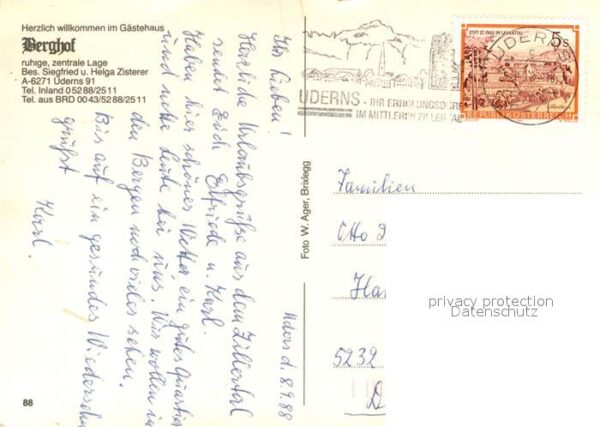 Herzlich willkommen im Gästehaus
Berghof
ruhige, zentrale Lage
Bes. Siegfried u. Helga Zisterer
A-6271 Uderns 91
Tel. Inland 05288/2511
Tel. aus BRD 0043/5288/2511
88
Uders d. 8.9.88
Ihr Lieben!
Herzliche Urlaubsgrüße aus dem Zillertal
sendet Euch Elfriede u. Karl.
Haben hier schönes Wetter ein gutes Quartier
und nette Leute bei uns. Wir wollen in
den Bergen noch vieles sehen.
Bis auf ein gesundes Wiedersehn
grüßt
Karl.
Foto W. Ager, Brixlegg
UDERNS - IHR ERHOLUNGSDORF
IM MITTLEREN ZILLERTAL
UDERNS
STIFT ST. PAUL IM LAVANTTAL
5 S
REPUBLIK ÖSTERREICH
Familien
Otto
5232
privacy protection
Datenschutz